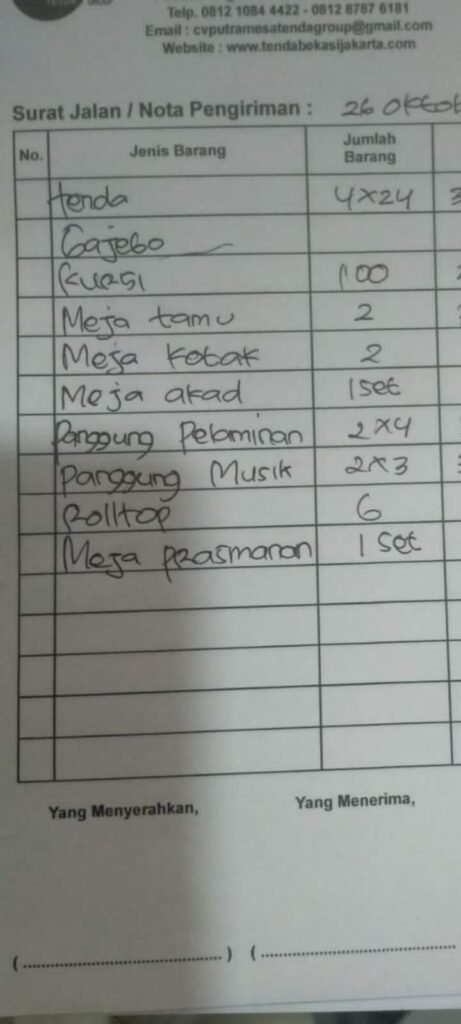 GROUP
Telp. 0812 1084 4422 - 0812 8787 6181
Email : cvputramesatendagroup@gmail.com
Website : www.tendabekasijakarta.com
Surat Jalan / Nota Pengiriman : 26 Oktob
No. Jenis Barang Jumlah Barang
tenda 4x24 3
Gajebo
Kursi 100
Meja tamu 2
Meja kotak 2
Meja akad 1 set
Panggung Pelaminan 2x4
Panggung Musik 2x3
Rolltop 6
Meja prasmanan 1 set
Yang Menyerahkan, Yang Menerima,
(........................................) (........................................